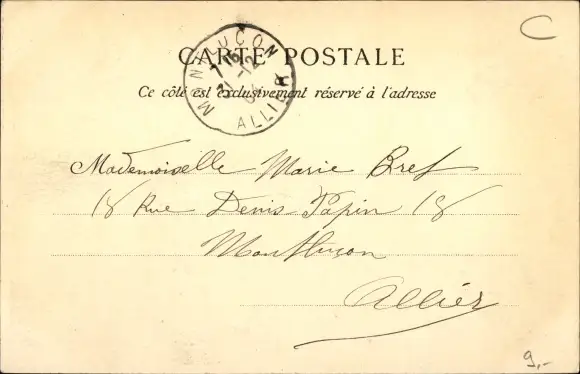 C
CARTE POSTALE
MONTLUÇON
7 15
31-12
ALLIER
Ce côté est exclusivement réservé à l'adresse
Mademoiselle Marie Bref
18 Rue Denis-Papin 18
Montluçon
Allier
9,-